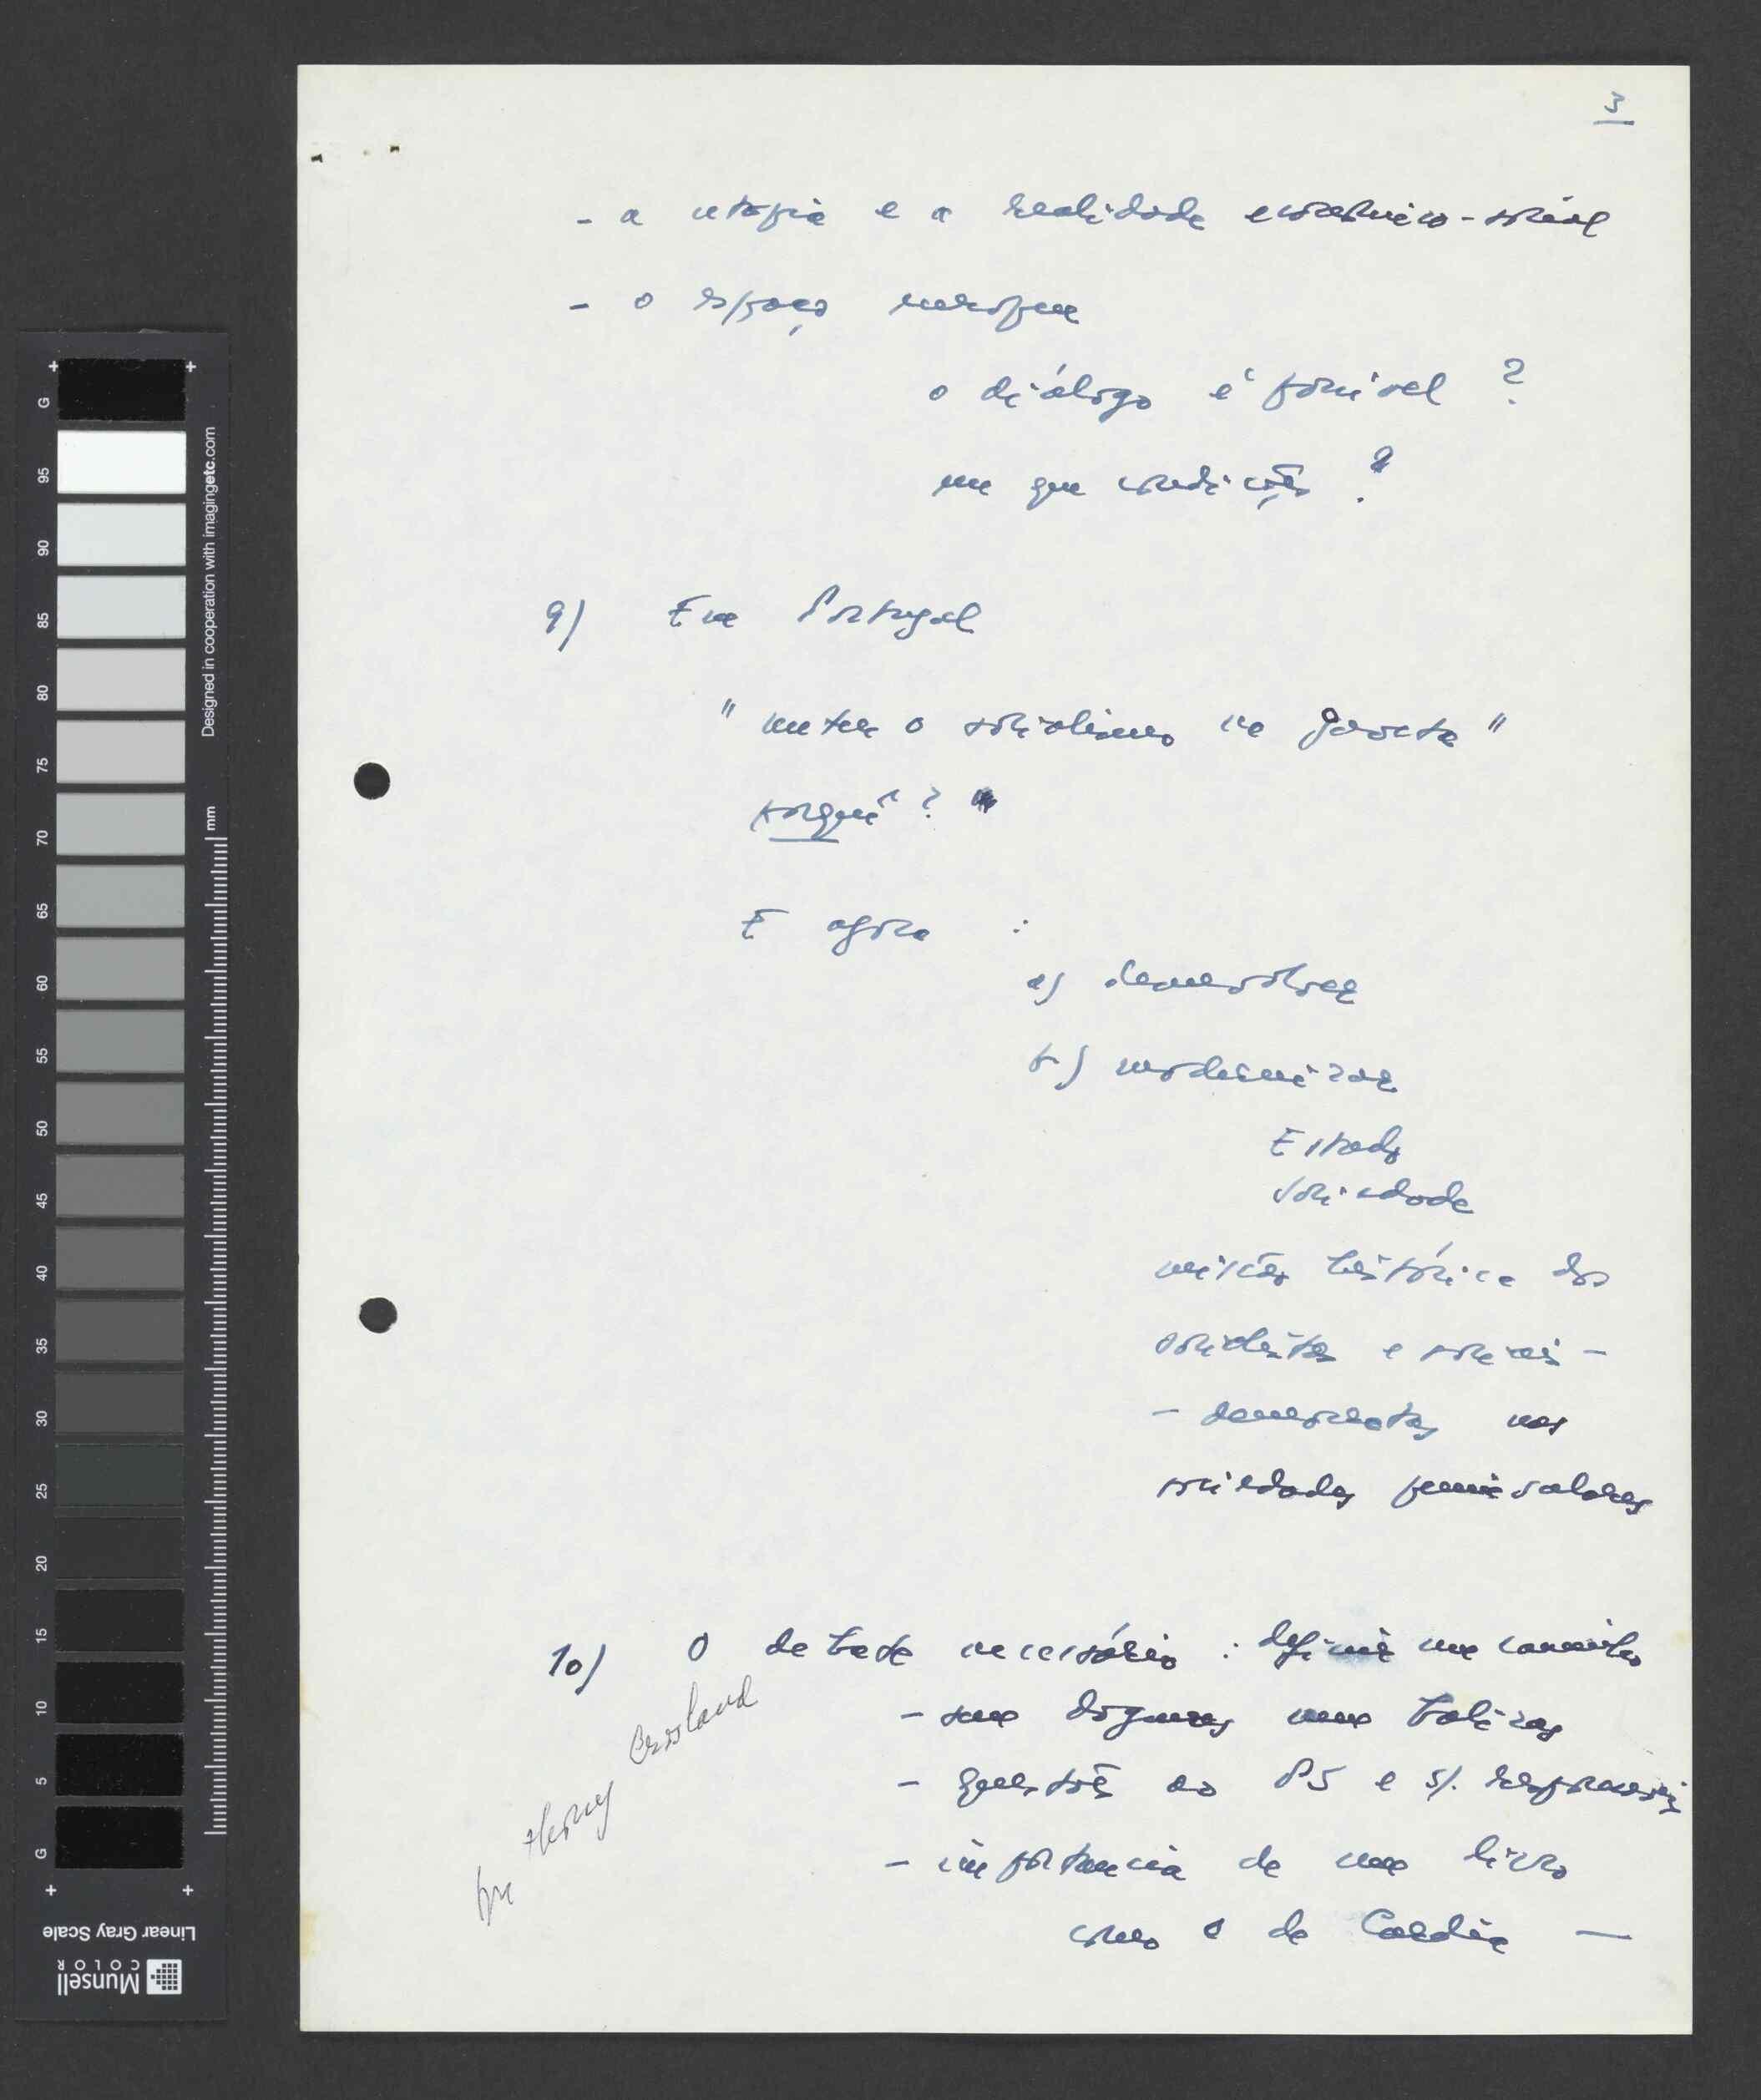 3
- a utopia e a realidade económico-social
- o espaço europeu
o diálogo é possível ?
em que condições ?
9) Em Portugal
" meter o socialismo na gaveta "
porquê ?
E agora :
a) desenvolver
b) modernizar
Estado
Sociedade
missão histórica dos
socialistas e sociais -
- democratas nas
sociedades peninsulares
10) O debate necessário : definir um caminho
- sem dogmas nem balizas
- questões ao PS e s/. responsáveis
- importancia de um livro
como o de Cardia —
Crosland
G
95
90
85
80
75
70
65
60
55
50
45
40
35
30
25
20
15
10
5
G
mm
Designed in cooperation with imagingetc.com
Linear Gray Scale
Munsell
COLOR